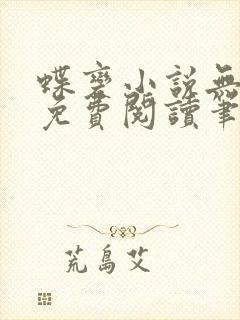 蝶變小說無
免費閱讀筆
荒島艾